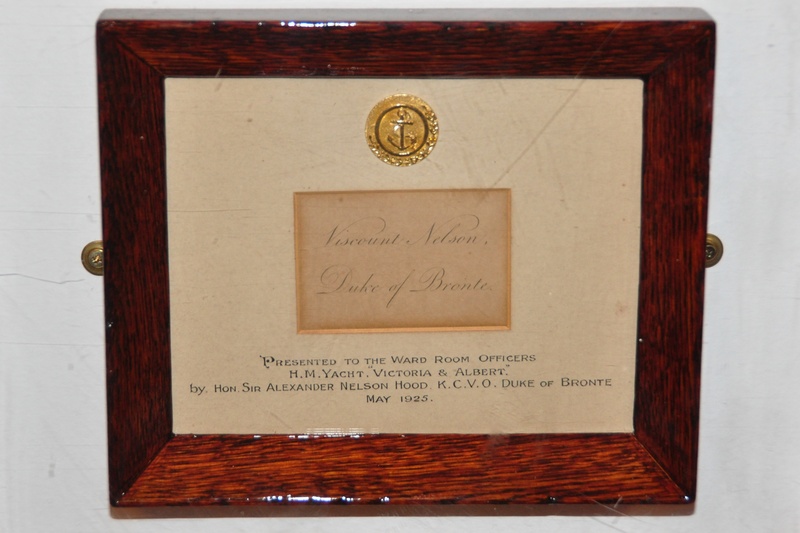 Viscount Nelson,
Duke of Bronte.
PRESENTED TO THE WARD ROOM OFFICERS
H.M. YACHT. "VICTORIA & ALBERT,"
by. HON. SIR ALEXANDER NELSON HOOD. K.C.V.O. DUKE OF BRONTE
MAY 1925.